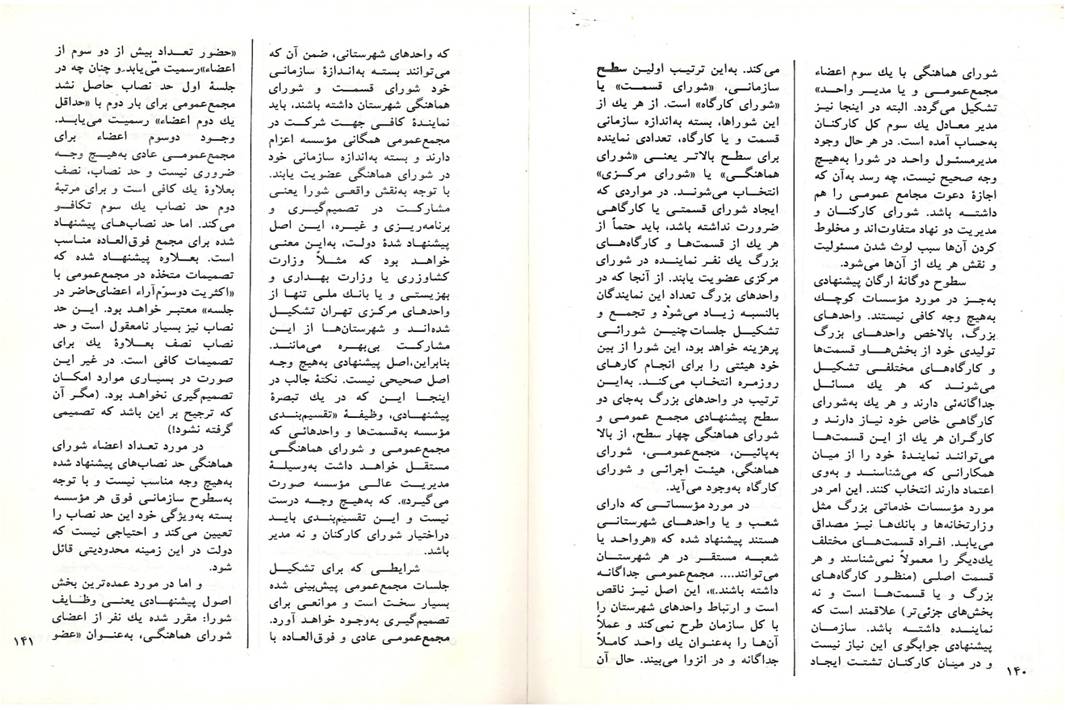 شورای هماهنگی با یك سوم اعضاء
مجمع‌عمومی و یا مدیر واحد»
تشکیل می‌گردد. البته در اینجا نیز
مدیر معادل یك سوم کل کارکنان
به‌حساب آمده است. در هر حال وجود
مدیرمسئول واحد در شورا به‌هیچ
وجه صحیح نیست، چه رسد به‌آن که
اجازهٔ دعوت مجامع عمومی را هم
داشته باشد. شورای کارکنان و
مدیریت دو نهاد متفاوت‌اند و مخلوط
کردن آن‌ها سبب لوث شدن مسئولیت
و نقش هر یك از آن‌ها می‌شود.
سطوح دوگانهٔ ارگان پیشنهادی
به‌جز در مورد مؤسسات کوچك
به‌هیچ وجه کافی نیستند. واحدهای
بزرگ، بالاخص واحدهای بزرگ
تولیدی خود از بخش‌ها و قسمت‌ها
و کارگاه‌های مختلفی تشکیل
می‌شوند که هر یك مسائل
جداگانه‌ئی دارند و هر یك به‌شورای
کارگاهی خاص خود نیاز دارند و
کارگران هر یك از این قسمت‌ها
می‌توانند نمایندهٔ خود را از میان
همکارانی که می‌شناسند و به‌وی
اعتماد دارند انتخاب کنند. این امر در
مورد مؤسسات خدماتی بزرگ مثل
وزارتخانه‌ها و بانك‌ها نیز مصداق
می‌یابد. افراد قسمت‌های مختلف
یك‌دیگر را معمولاً نمی‌شناسند و هر
قسمت اصلی (منظور کارگاه‌های
بزرگ و یا قسمت‌ها است و نه
بخش‌های جزئی‌تر) علاقمند است که
نماینده داشته باشد. سازمان
پیشنهادی جوابگوی این نیاز نیست
و در میان کارکنان تشتت ایجاد
می‌کند. به‌این ترتیب اولین سطح
سازمانی، «شورای قسمت» یا
«شورای کارگاه» است. از هر یك از
این شوراها، بسته به‌اندازه سازمانی
قسمت و یا کارگاه، تعدادی نماینده
برای سطح بالاتر یعنی «شورای
هماهنگی» یا «شورای مرکزی»
انتخاب می‌شوند. در مواردی که
ایجاد شورای قسمتی یا کارگاهی
ضرورت نداشته باشد، باید حتماً از
هر یك از قسمت‌ها و کارگاه‌های
بزرگ یك نفر نماینده در شورای
مرکزی عضویت یابند. از آنجا که در
واحدهای بزرگ تعداد این نمایندگان
بالنسبه زیاد می‌شود و تجمع و
تشکیل جلسات چنین شورائی
پرهزینه خواهد بود، این شورا از بین
خود هیئتی را برای انجام کارهای
روزمره انتخاب می‌کند. به‌این
ترتیب در واحدهای بزرگ به‌جای دو
سطح پیشنهادی مجمع عمومی و
شورای هماهنگی چهار سطح، از بالا
به‌پائین، مجمع‌عمومی، شورای
هماهنگی، هیئت اجرائی و شورای
کارگاه به‌وجود می‌آید.
در مورد مؤسساتی که دارای
شعب و یا واحدهای شهرستانی
هستند پیشنهاد شده که «هرواحد یا
شعبه مستقر در هر شهرستان
می‌توانند.... مجمع‌عمومی جداگانه
داشته باشند.»، این اصل نیز ناقص
است و ارتباط واحدهای شهرستان را
با کل سازمان طرح نمی‌کند و عملاً
آن‌ها را به‌عنوان یك واحد کاملاً
جداگانه و در انزوا می‌بیند. حال آن
۱۴۰
که واحدهای شهرستانی، ضمن آن که
می‌توانند بسته به‌اندازهٔ سازمانی
خود شورای قسمت و شورای
هماهنگی شهرستان داشته باشند، باید
نمایندهٔ کافی جهت شرکت در
مجمع‌عمومی همگانی مؤسسه اعزام
دارند و بسته به‌اندازه سازمانی خود
در شورای هماهنگی عضویت یابند.
با توجه به‌نقش واقعی شورا یعنی
مشارکت در تصمیم‌گیری و
برنامه‌ریزی و غیره، این اصل
پیشنهاد شدهٔ دولت، به‌این معنی
خواهد بود که مثلاً وزارت
کشاورزی یا وزارت بهداری و
بهزیستی و یا بانك ملی تنها از
واحدهای مرکزی تهران تشکیل
شده‌اند و شهرستان‌ها از این
مشارکت بی‌بهره می‌مانند.
بنابراین،اصل پیشنهادی به‌هیچ وجه
اصل صحیحی نیست. نکتهٔ جالب در
اینجا این که در یك تبصرهٔ
پیشنهادی، وظیفهٔ «تقسیم‌بندی
مؤسسه به‌قسمت‌ها و واحدهائی که
مجمع‌عمومی و شورای هماهنگی
مستقل خواهد داشت به‌وسیلهٔ
مدیریت عالی مؤسسه صورت
می‌گیرد». که به‌هیچ وجه درست
نیست و این تقسیم‌بندی باید
دراختیار شورای کارکنان و نه مدیر
باشد.
شرایطی که برای تشکیل
جلسات مجمع عمومی پیش‌بینی شده
بسیار سخت است و موانعی برای
تصمیم‌گیری به‌وجود خواهد آورد.
مجمع‌عمومی عادی و فوق‌العاده با
«حضور تعداد بیش از دو سوم از
اعضاء»رسمیت می‌یابد و چنان چه در
جلسهٔ اول حد نصاب حاصل نشد
مجمع‌عمومی برای بار دوم با «حداقل
یك دوم اعضاء» رسمیت می‌یابد.
وجود دوسوم اعضاء برای
مجمع‌عمومی عادی به‌هیچ وجه
ضروری نیست و حد نصاب، نصف
بعلاوهٔ یك کافی است و برای مرتبهٔ
دوم حد نصاب یك سوم تکافو
می‌کند. اما حد نصاب‌های پیشنهاد
شده برای مجمع فوق‌العاده مناسب
است. بعلاوه پیشنهاد شده که
تصمیمات متخذه در مجمع‌عمومی با
«اکثریت دوسوّم‌آراء اعضای‌حاضر در
جلسه» معتبر خواهد بود. این حد
نصاب نیز بسیار نامعقول است و حد
نصاب نصف بعلاوهٔ یك برای
تصمیمات کافی است. در غیر این
صورت در بسیاری موارد امکان
تصمیم‌گیری نخواهد بود. (مگر آن
که ترجیح بر این باشد که تصمیمی
گرفته نشود!)
در مورد تعداد اعضاء شورای
هماهنگی حد نصاب‌های پیشنهاد شده
به‌هیچ وجه مناسب نیست و با توجه
به‌سطوح سازمانی فوق هر مؤسسه
بسته به‌ویژگی خود این حد نصاب را
تعیین می‌کند و احتیاجی نیست که
دولت در این زمینه محدودیتی قائل
شود.
و اما در مورد عمده‌ترین بخش
اصول پیشنهادی یعنی وظایف
شورا: مقرر شده یك نفر از اعضای
شورای هماهنگی، به‌عنوان «عضو
۱۴۱